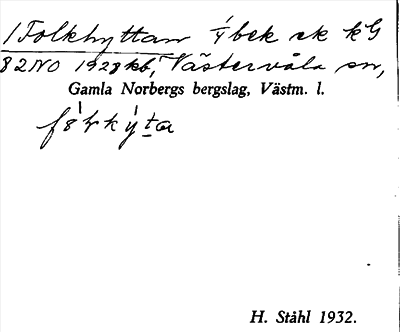 1 Folkhyttan 1/4 bek ek kG
82NO 1928 kb, Västervåla sn,
Gamla Norbergs bergslag, Västm. l.
H. Ståhl 1932.